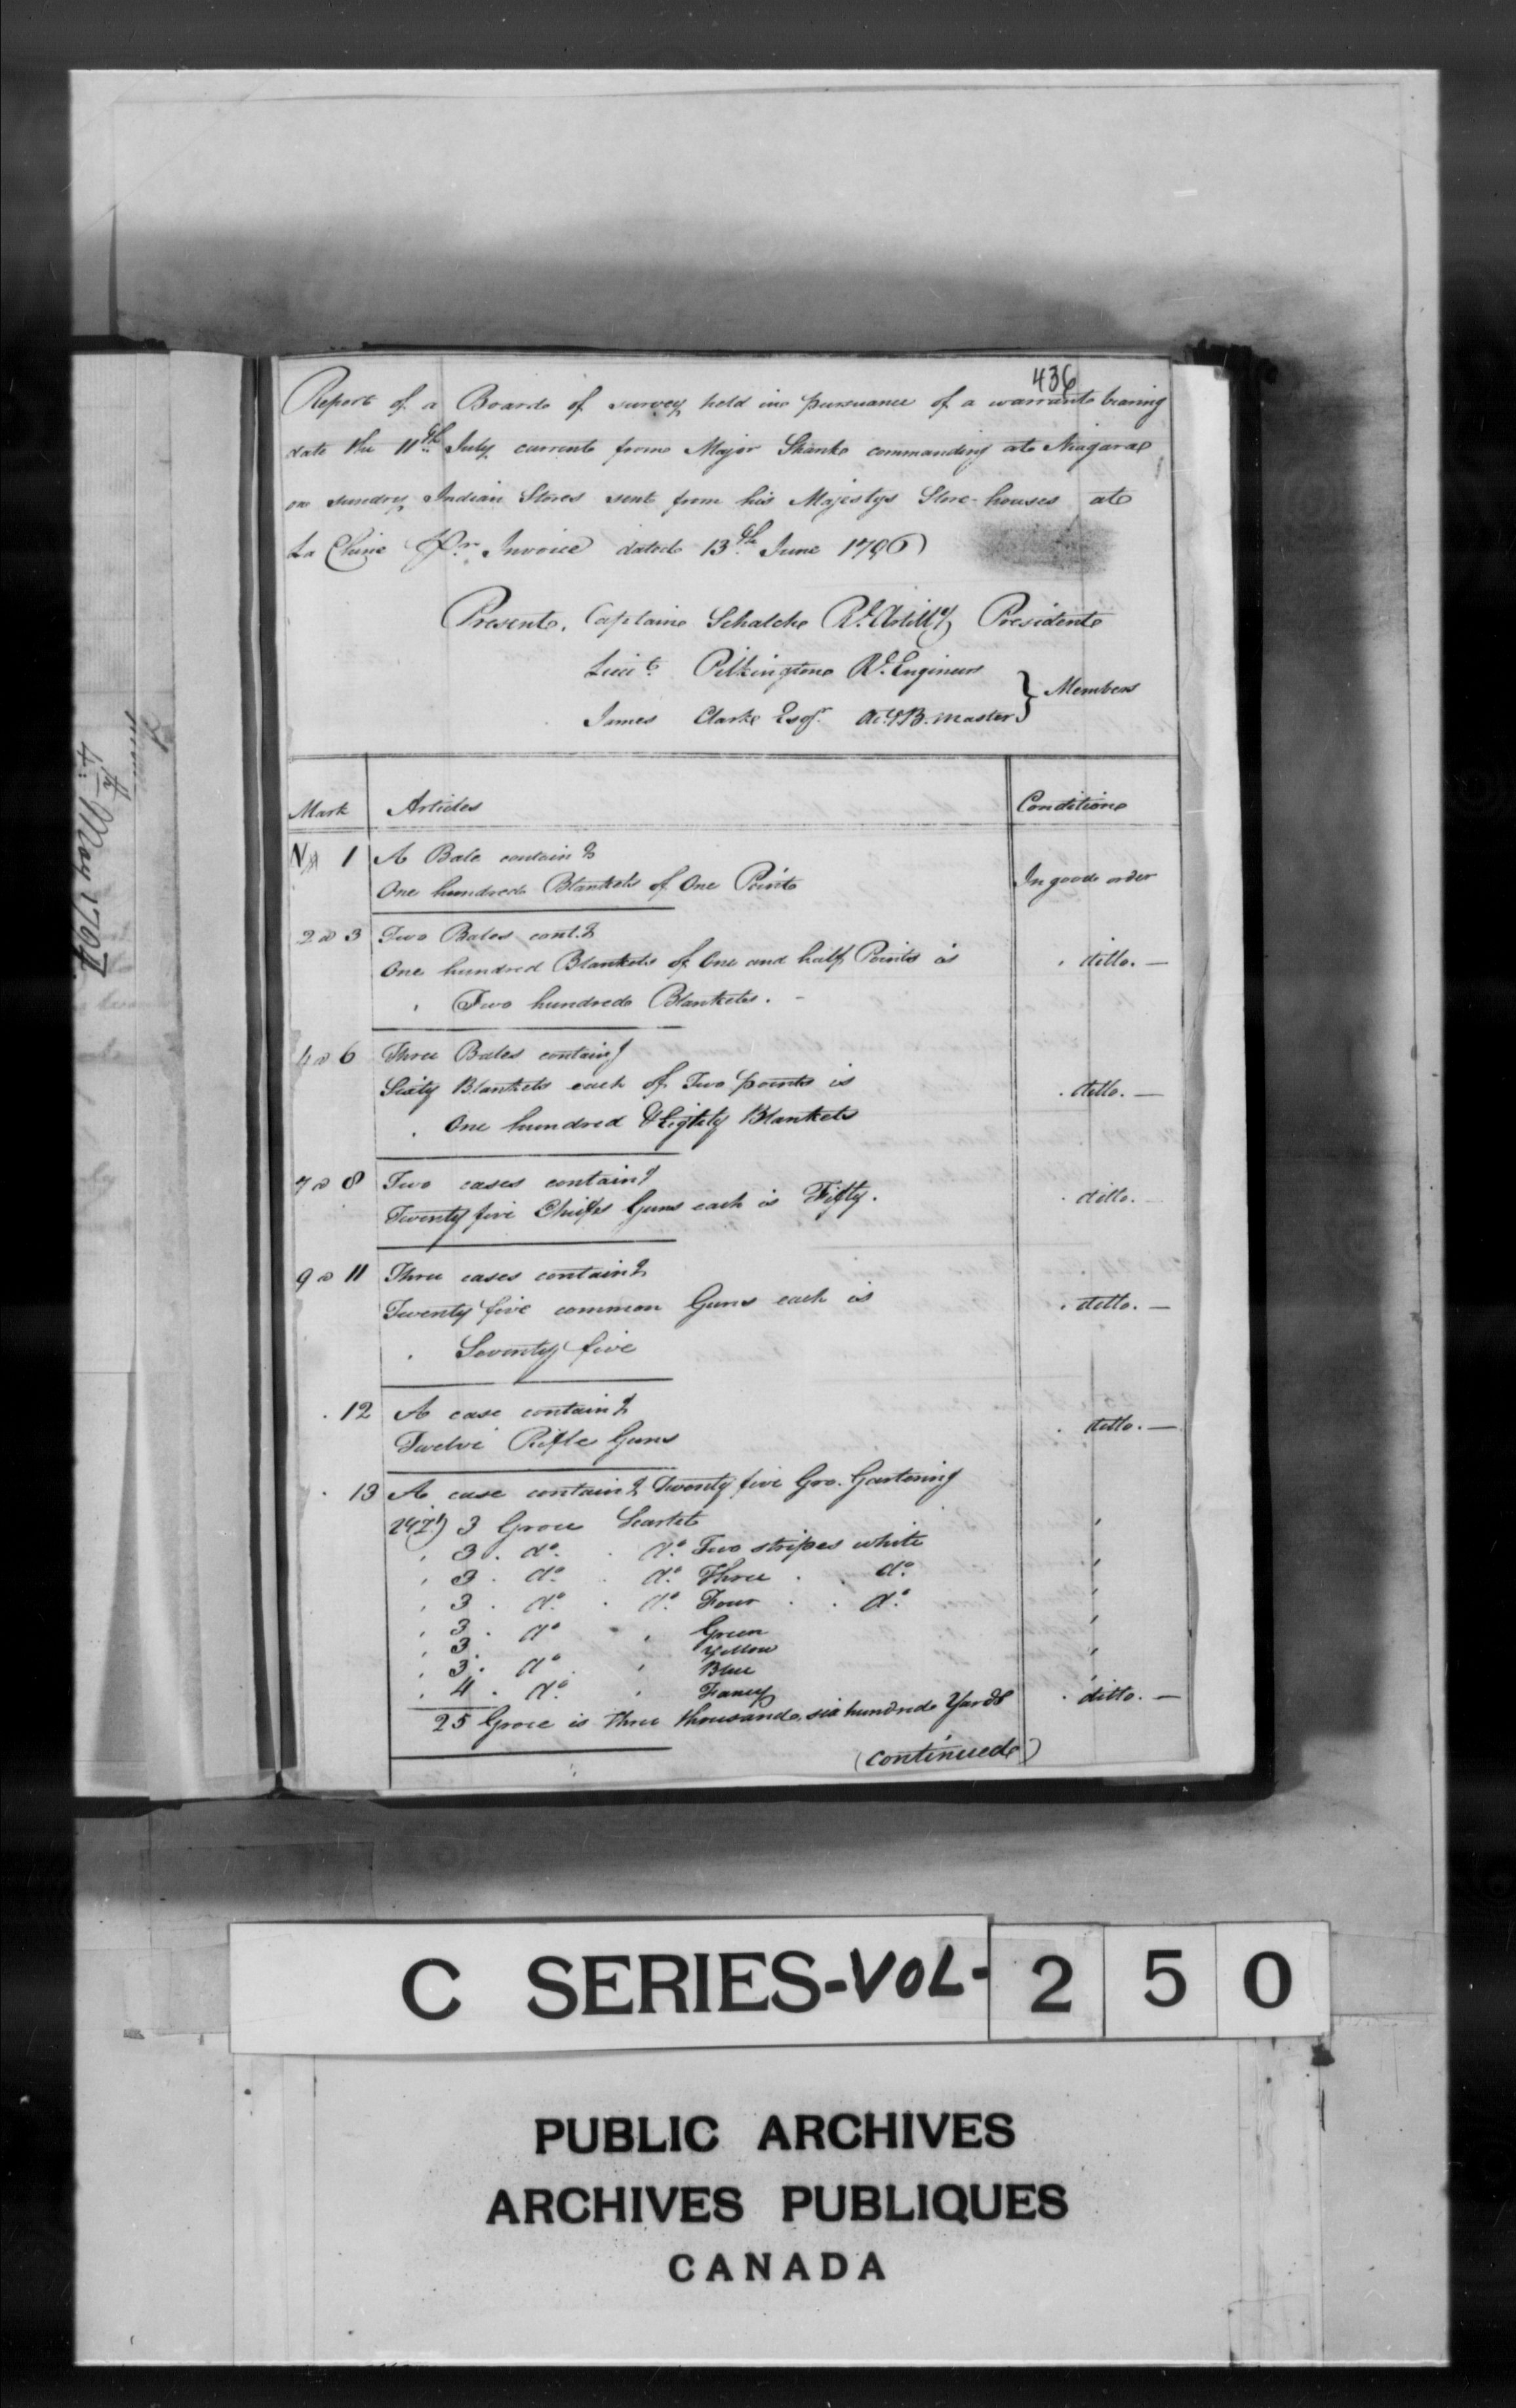 436
Report of a Board of survey held in pursuance of a warrant bearing
date the 11th July current from Major Shank commanding at Niagara
on sundry Indian Stores sent from his Majestys Store-houses at
La Chine Pr. Invoice dated 13th June 1796
Present. Captain Schalch Rl. Artilly President
Lieut. Pilkington Rl. Engineers
James Clark Esqr. B. master } Members
Mark Articles Condition
No 1 A Bale containg
One hundred Blankets of One Point In good order
2 a 3 Two Bales contg.
One hundred Blankets of One and half Points is ditto. —
Two hundred Blankets. -
4 a 6 Three Bales containg
Sixty Blankets each of Two points is ditto. —
One hundred & Eighty Blankets
7 a 8 Two cases containg
Twenty five Chiefs Guns each is Fifty. ditto. -
9 a 11 Three cases containg
Twenty five common Guns each is ditto. —
Seventy five
12 A case containg
Twelve Rifle Guns ditto. —
13 A case containg Twenty five Gro. Gartering
3 Groce Scarlet
3 do. do. Two stripes white
3 do. do. Three do.
3 do. do. Four do.
3 do. Green
3. Yellow
3. do. Blue
4 do. Fancy
25 Groce is three thousand, six hundred Yards ditto. —
(continued)
4th May 1797
C SERIES-VOL-250
PUBLIC ARCHIVES
ARCHIVES PUBLIQUES
CANADA